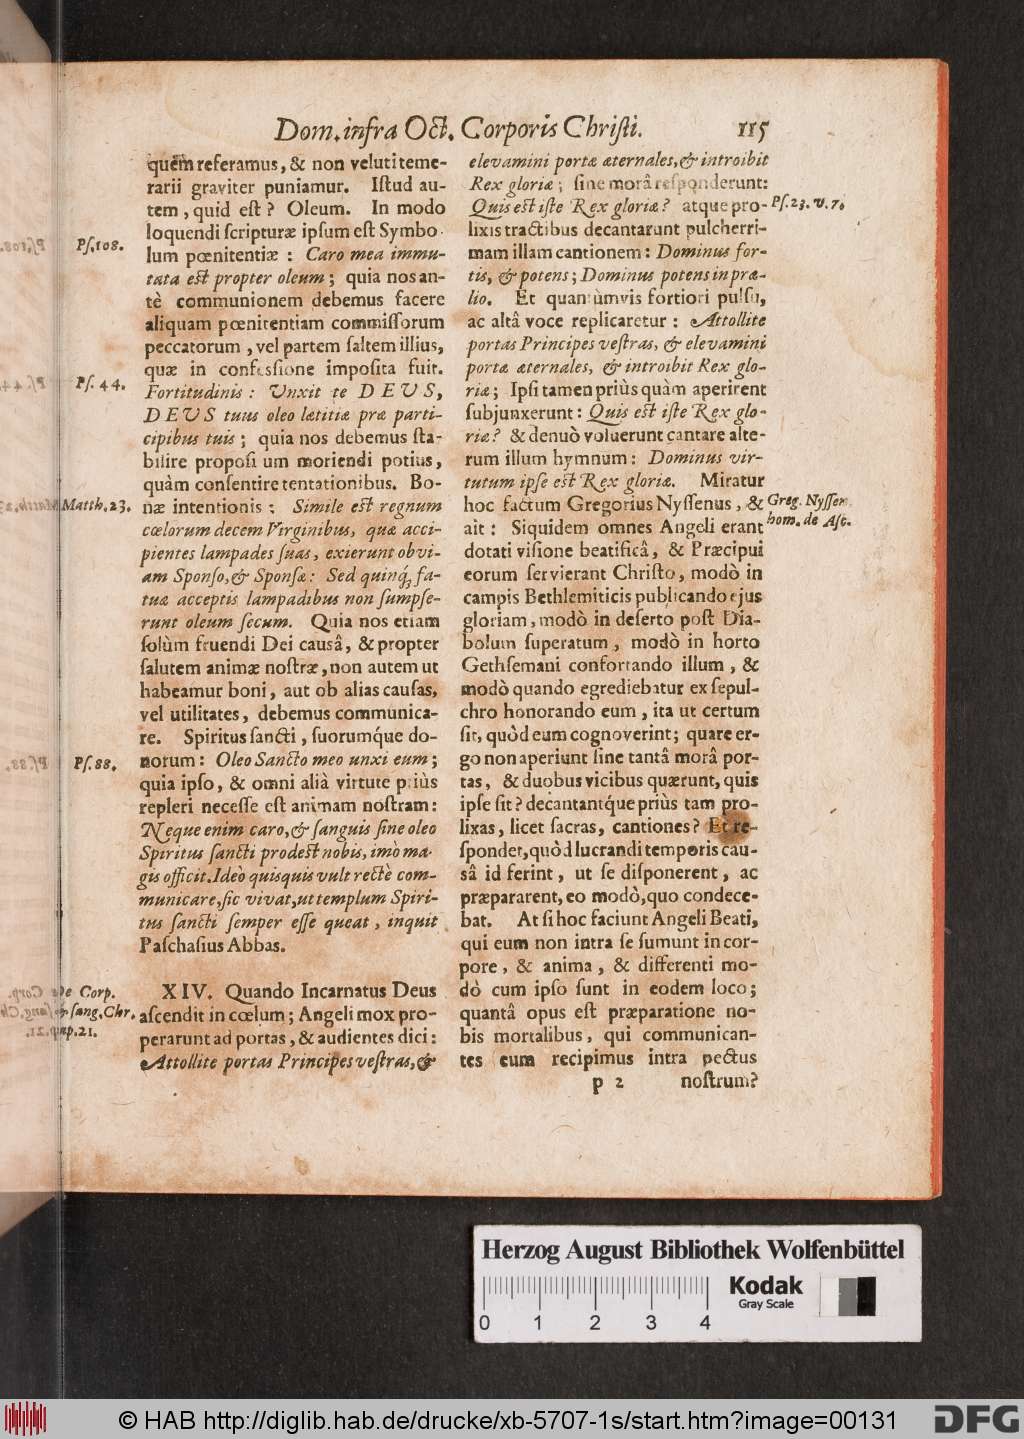 Dom. infra Oct. Corporis Christi. 115
quem referamus, & non veluti teme-
rarii graviter puniamur. Iſtud au-
tem, quid eſt? Oleum. In modo
loquendi ſcripturæ ipſum eſt Symbo-
Pſ. 108.
lum pœnitentiæ: Caro mea immu-
tata eſt propter oleum; quia nos an-
tè communionem debemus facere
aliquam pœnitentiam commiſſorum
peccatorum, vel partem ſaltem illius,
quæ in confeſſione impoſita fuit.
Pſ. 44.
Fortitudinis: Unxit te DEUS,
DEUS tuus oleo lætitiæ præ parti-
cipibus tuis; quia nos debemus ſta-
bilire propoſi um moriendi potius,
quàm conſentire tentationibus. Bo-
Matth. 23.
næ intentionis: Simile eſt regnum
cœlorum decem Virginibus, quæ acci-
pientes lampades ſuas, exierunt obvi-
am Sponſo, & Sponſæ: Sed quinq́; fa-
tuæ acceptis lampadibus non ſumpſe-
runt oleum ſecum. Quia nos etiam
ſolùm fruendi Dei causâ, & propter
ſalutem animæ noſtræ, non autem ut
habeamur boni, aut ob alias cauſas,
vel utilitates, debemus communica-
re. Spiritus ſancti, ſuorumq́ue do-
Pſ. 88.
norum: Oleo Sancto meo unxi eum;
quia ipſo, & omni aliâ virtute priùs
repleri neceſſe eſt animam noſtram:
Neque enim caro, & ſanguis ſine oleo
Spiritus ſancti prodeſt nobis, imò ma-
gis officit. Ideò quisquis vult rectè com-
municare, ſic vivat, ut templum Spiri-
tus ſancti ſemper eſſe queat, inquit
Paſchaſius Abbas.
De Corp.
& ſang. Chr.
cap. 21.
XIV. Quando Incarnatus Deus
aſcendit in cœlum; Angeli mox pro-
perarunt ad portas, & audientes dici:
Attollite portas Principes veſtras, &
elevamini portæ æternales, & introibit
Rex gloriæ; ſine morâ reſponderunt:
Quis eſt iſte Rex gloriæ? atque pro-
Pſ. 23. v. 7.
lixis tractibus decantarunt pulcherri-
mam illam cantionem: Dominus for-
tis, & potens; Dominus potens in præ-
lio. Et quantùmvis fortiori pulſu,
ac altâ voce replicaretur: Attollite
portas Principes veſtras, & elevamini
portæ æternales, & introibit Rex glo-
riæ; Ipſi tamen priùs quàm aperirent
ſubjunxerunt: Quis eſt iſte Rex glo-
riæ? & denuò voluerunt cantare alte-
rum illum hymnum: Dominus vir-
tutum ipſe eſt Rex gloriæ. Miratur
hoc factum Gregorius Nyſſenus, &
Greg. Nyſſen.
hom. de Aſc.
ait: Siquidem omnes Angeli erant
dotati viſione beatificâ, & Præcipui
eorum ſervierant Chriſto, modò in
campis Bethlemiticis publicando ejus
gloriam, modò in deſerto poſt Dia-
bolum ſuperatum, modò in horto
Gethſemani confortando illum, &
modò quando egrediebatur ex ſepul-
chro honorando eum, ita ut certum
ſit, quòd eum cognoverint; quare er-
go non aperiunt ſine tantâ morâ por-
tas, & duobus vicibus quærunt, quis
ipſe ſit? decantantq́ue priùs tam pro-
lixas, licet ſacras, cantiones? Et re-
ſpondet, quòd lucrandi temporis cau-
sâ id ferint, ut ſe diſponerent, ac
præpararent, eo modò, quo condece-
bat. At ſi hoc faciunt Angeli Beati,
qui eum non intra ſe ſumunt in cor-
pore, & anima, & differenti mo-
dò cum ipſo ſunt in eodem loco;
quantâ opus eſt præparatione no-
bis mortalibus, qui communican-
tes eum recipimus intra pectus
p 2 noſtrum?
Herzog August Bibliothek Wolfenbüttel
Kodak
Gray Scale
0 1 2 3 4
© HAB http://diglib.hab.de/drucke/xb-5707-1s/start.htm?image=00131
DFG